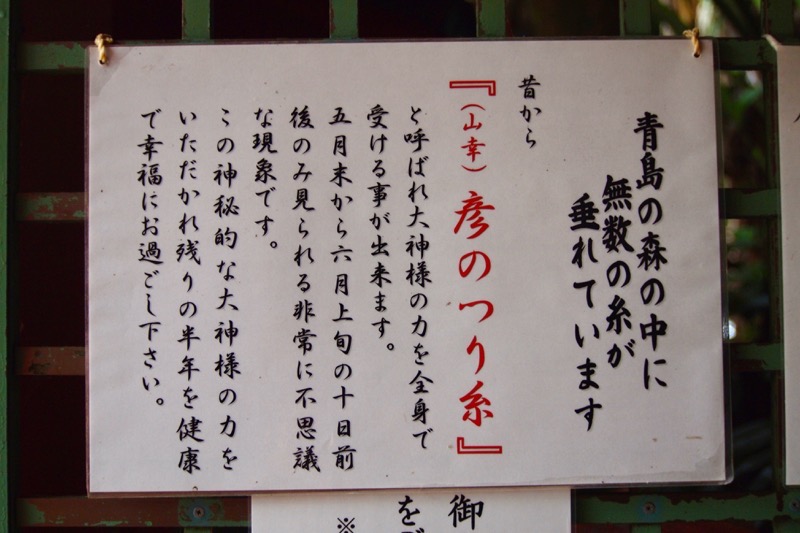 青島の森の中に
無数の糸が
垂れています
昔から
『(山幸)彦のつり糸』
と呼ばれ大神様の力を全身で
受ける事が出来ます。
五月末から六月上旬の十日前
後のみ見られる非常に不思議
な現象です。
この神秘的な大神様の力を
いただかれ残りの半年を健康
で幸福にお過ごし下さい。
御
を
※